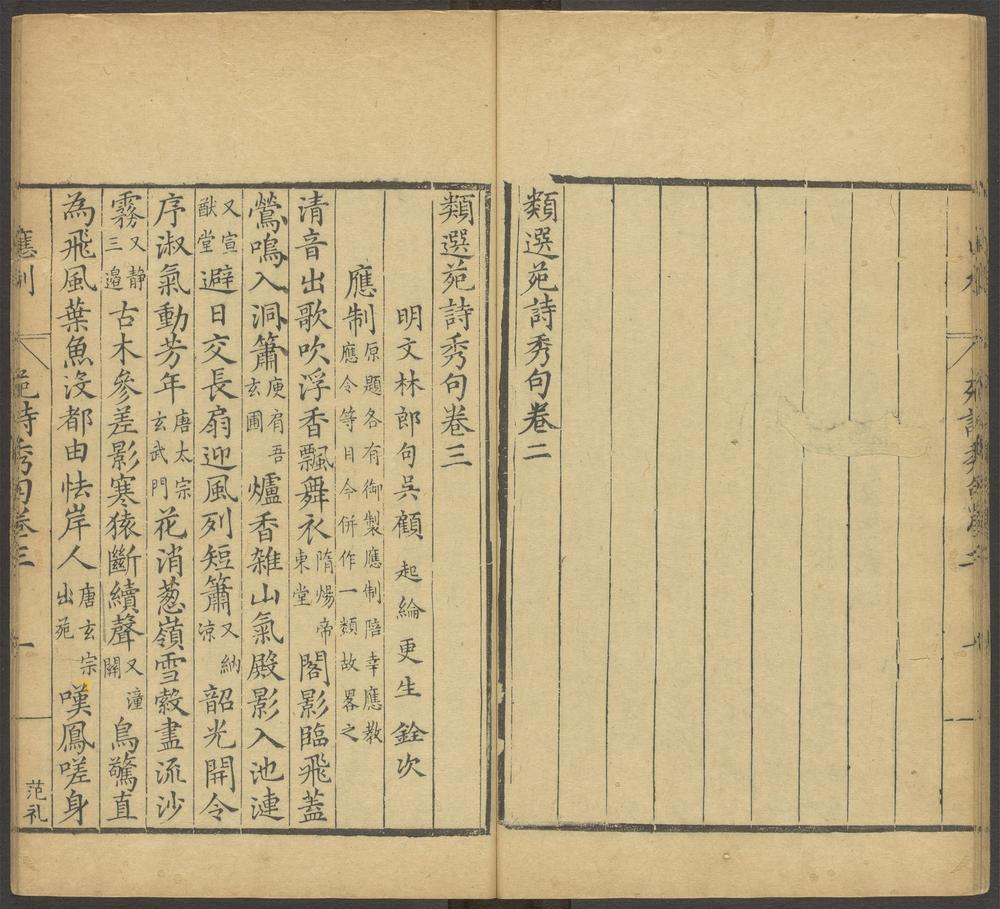 類選苑詩秀句卷二
類選苑詩秀句卷三
明文林郎句吳顧起綸更生銓次
應制原題各有御製應制陪幸應教應令等目今併作一類故畧之
清音出歌吹浮香飄舞衣隋煬帝東堂閣影臨飛蓋
鶯鳴入洞簫庾肩吾玄圃爐香雜山氣殿影入池漣
又宣猷堂避日交長扇迎風列短簫又納凉韶光開令
序淑氣動芳年唐太宗玄武門花消葱嶺雪縠盡流沙
霧又静三邉古木參差影寒猿斷續聲又潼關鳥驚直
為飛風葉魚没都由怯岸人唐玄宗出苑嘆鳳嗟身
應制
苑詩秀句卷三
一
范礼